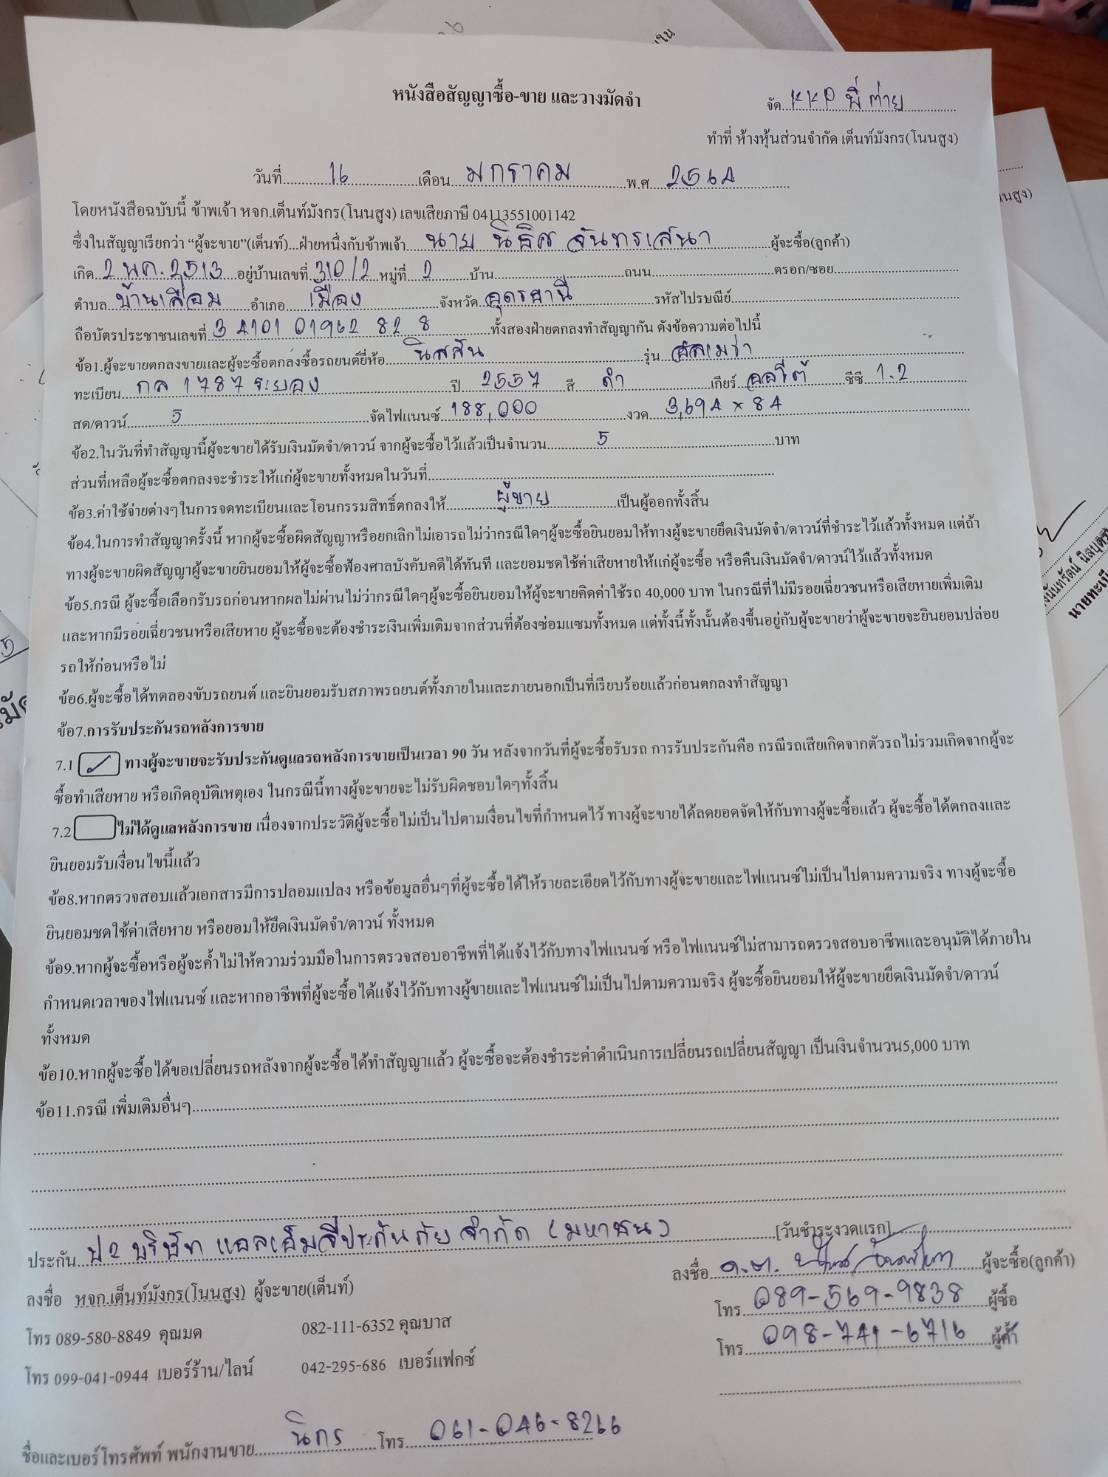 หนังสือสัญญาซื้อ-ขาย และวางมัดจำ
จัด KKP พี่ต่าย
ทำที่ ห้างหุ้นส่วนจำกัด เต็นท์มังกร(โนนสูง)
วันที่ 16 เดือน มกราคม พ.ศ 2564
โดยหนังสือฉบับนี้ ข้าพเจ้า หจก.เต็นท์มังกร(โนนสูง) เลขเสียภาษี 04113551001142
ซึ่งในสัญญาเรียกว่า "ผู้จะขาย"(เต็นท์)...ฝ่ายหนึ่งกับข้าพเจ้า นาย นิธิศ จันทรเสนา ผู้จะซื้อ(ลูกค้า)
เกิด 2 พค. 2513 อยู่บ้านเลขที่ 310/2 หมู่ที่ 2 บ้าน ถนน ตรอก/ซอย
ตำบล บ้านเลื่อม อำเภอ เมือง จังหวัด อุดรธานี รหัสไปรษณีย์
ถือบัตรประชาชนเลขที่ 3 4101 01962 82 8 ทั้งสองฝ่ายตกลงทำสัญญากัน ดังข้อความต่อไปนี้
ข้อ1.ผู้จะขายตกลงขายและผู้จะซื้อตกลงซื้อรถยนต์ยี่ห้อ นิสสัน รุ่น อัลเมร่า
ทะเบียน กล 1787 ระยอง ปี 2557 สี ดำ เกียร์ ออโต้ ซีซี 1.2
สด/ดาวน์ 5 จัดไฟแนนซ์ 188,000 งวด 3,694 x 84
ข้อ2.ในวันที่ทำสัญญานี้ผู้จะขายได้รับเงินมัดจำ/ดาวน์ จากผู้จะซื้อไว้แล้วเป็นจำนวน 5 บาท
ส่วนที่เหลือผู้จะซื้อตกลงจะชำระให้แก่ผู้จะขายทั้งหมดในวันที่
ข้อ3.ค่าใช้จ่ายต่างๆในการจดทะเบียนและโอนกรรมสิทธิ์ตกลงให้ ผู้ขาย เป็นผู้ออกทั้งสิ้น
ข้อ4.ในการทำสัญญาครั้งนี้ หากผู้จะซื้อผิดสัญญาหรือยกเลิกไม่เอารถไม่ว่ากรณีใดๆผู้จะซื้อยินยอมให้ทางผู้จะขายยึดเงินมัดจำ/ดาวน์ที่ชำระไว้แล้วทั้งหมด แต่ถ้า
ทางผู้จะขายผิดสัญญาผู้จะขายยินยอมให้ผู้จะซื้อฟ้องศาลบังคับคดีได้ทันที และยอมชดใช้ค่าเสียหายให้แก่ผู้จะซื้อ หรือคืนเงินมัดจำ/ดาวน์ไว้แล้วทั้งหมด
ข้อ5.กรณี ผู้จะซื้อเลือกรับรถก่อนหากผลไม่ผ่านไม่ว่ากรณีใดๆผู้จะซื้อยินยอมให้ผู้จะขายคิดค่าใช้รถ 40,000 บาท ในกรณีที่ไม่มีรอยเฉี่ยวชนหรือเสียหายเพิ่มเติม
และหากมีรอยเฉี่ยวชนหรือเสียหาย ผู้จะซื้อจะต้องชำระเงินเพิ่มเติมจากส่วนที่ต้องซ่อมแซมทั้งหมด แต่ทั้งนี้ทั้งนั้นต้องขึ้นอยู่กับผู้จะขายว่าผู้จะขายจะยินยอมปล่อย
รถให้ก่อนหรือไม่
ข้อ6.ผู้จะซื้อได้ทดลองขับรถยนต์ และยินยอมรับสภาพรถยนต์ทั้งภายในและภายนอกเป็นที่เรียบร้อยแล้วก่อนตกลงทำสัญญา
ข้อ7.การรับประกันรถหลังการขาย
7.1 ✓ ทางผู้จะขายจะรับประกันดูแลรถหลังการขายเป็นเวลา 90 วัน หลังจากวันที่ผู้จะซื้อรับรถ การรับประกันคือ กรณีรถเสียเกิดจากตัวรถ ไม่รวมเกิดจากผู้จะ
ซื้อทำเสียหาย หรือเกิดอุบัติเหตุเอง ในกรณีนี้ทางผู้จะขายจะไม่รับผิดชอบใดๆทั้งสิ้น
7.2 ไม่ได้ดูแลหลังการขาย เนื่องจากประวัติผู้จะซื้อไม่เป็นไปตามเงื่อนไขที่กำหนดไว้ ทางผู้จะขายได้ลดยอดจัดให้กับทางผู้จะซื้อแล้ว ผู้จะซื้อได้ตกลงและ
ยินยอมรับเงื่อนไขนี้แล้ว
ข้อ8.หากตรวจสอบแล้วเอกสารมีการปลอมแปลง หรือข้อมูลอื่นๆที่ผู้จะซื้อได้ให้รายละเอียดไว้กับทางผู้จะขายและไฟแนนซ์ไม่เป็นไปตามความจริง ทางผู้จะซื้อ
ยินยอมชดใช้ค่าเสียหาย หรือยอมให้ยึดเงินมัดจำ/ดาวน์ ทั้งหมด
ข้อ9.หากผู้จะซื้อหรือผู้จะค้ำไม่ให้ความร่วมมือในการตรวจสอบอาชีพที่ได้แจ้งไว้กับทางไฟแนนซ์ หรือไฟแนนซ์ไม่สามารถตรวจสอบอาชีพและอนุมัติได้ภายใน
กำหนดเวลาของไฟแนนซ์ และหากอาชีพที่ผู้จะซื้อได้แจ้งไว้กับทางผู้ขายและไฟแนนซ์ไม่เป็นไปตามความจริง ผู้จะซื้อยินยอมให้ผู้จะขายยึดเงินมัดจำ/ดาวน์
ทั้งหมด
ข้อ10.หากผู้จะซื้อได้ขอเปลี่ยนรถหลังจากผู้จะซื้อได้ทำสัญญาแล้ว ผู้จะซื้อจะต้องชำระค่าดำเนินการเปลี่ยนรถเปลี่ยนสัญญา เป็นเงินจำนวน5,000 บาท
ข้อ11.กรณี เพิ่มเติมอื่นๆ
ประกัน ป2 บริษัท แอลเอ็มจีประกันภัย จำกัด (มหาชน) [วันชำระงวดแรก]
ลงชื่อ หจก.เต็นท์มังกร(โนนสูง) ผู้จะขาย(เต็นท์)
ลงชื่อ ด.ต. ผู้จะซื้อ(ลูกค้า)
โทร 089-580-8849 คุณมด 082-111-6352 คุณบาส
โทร 089-569-9838 ผู้ซื้อ
โทร 099-041-0944 เบอร์ร้าน/ไลน์ 042-295-686 เบอร์แฟกซ์
โทร 098-741-6716 ผู้ค้ำ
ชื่อและเบอร์โทรศัพท์ พนักงานขาย นิกร โทร 061-046-8266